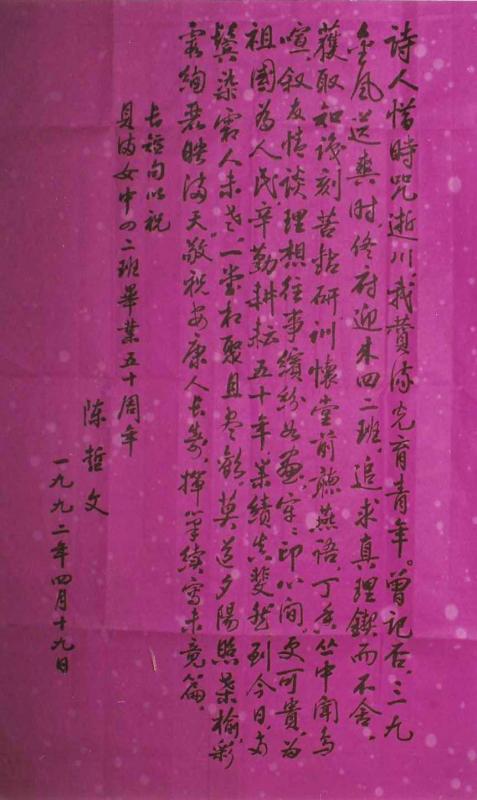 诗人惜时咒逝川，我费流光育青年。曾记否，三九
金风送爽时，佟府迎来四二班。追求真理锲而不舍，
获取知识刻苦钻研。训怀堂前听燕语，丁香丛中闻鸟
喧。叙友情谈理想，往事缤纷如画，牢牢印心间。更可贵，为
祖国为人民辛勤耕耘五十年，业绩真斐然。到今日，
鬓染霜人未老，一堂相聚且尽欢。莫道夕阳照桑榆，彩
霞绚丽映满天。敬祝安康人长寿，挥笔续写未竟篇。
长短句以祝
贝满女中四二班毕業五十周年
陈哲文
一九九二年四月十九日